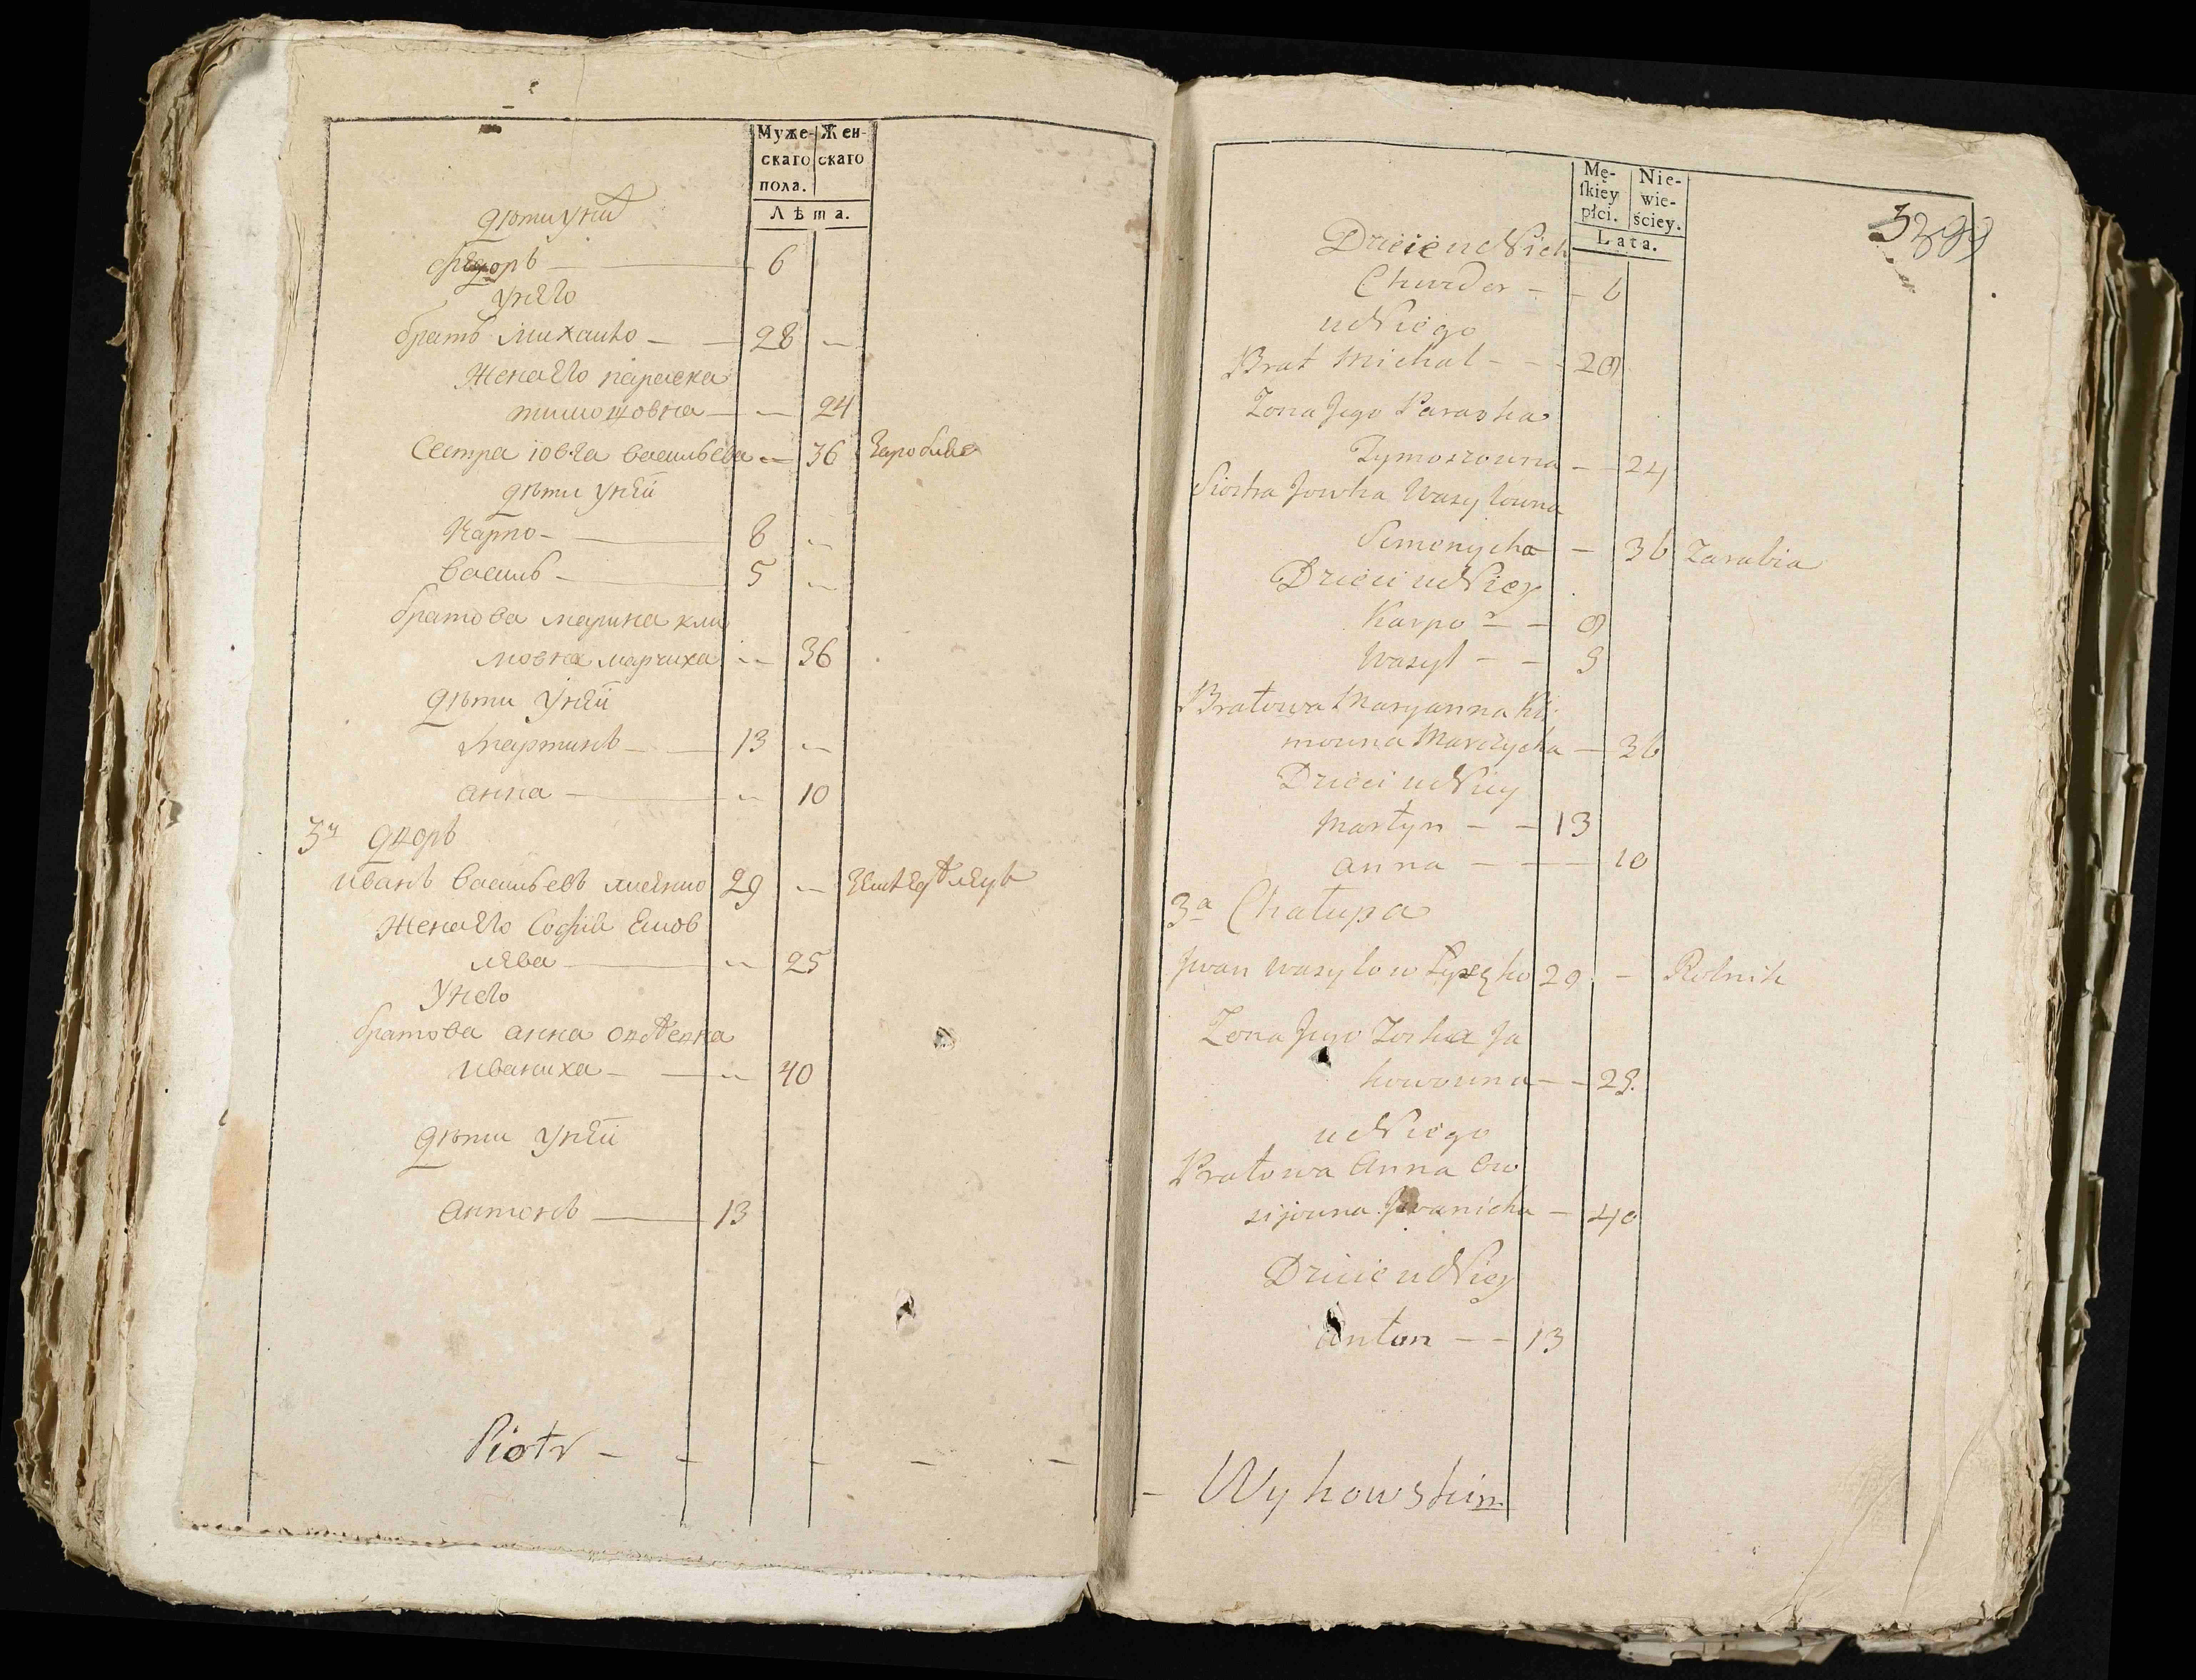 Муже-
скаго
пола.
Жен-
скаго
Лѣта.
дѣти у нихъ
6
у него
братъ михайло — — 28 —
жена его параска
тимошовна — — 24
Сестра Ювга васильева — 36
дѣти у неи
Карпо — 8 —
василь — 5 —
братова марина кли
мовна марчиха — 36
дѣти у неи
мартинъ — 13 —
анна — — 10
3й дворъ
иванъ васильевъ 29 —
жена его Софія
лева — — 25
у него
братова анна
иваниха — — 40
дѣти у неи
антонъ — 13
Piotr — — — — —
Mę-
ſkiey
płci.
Nie-
wie-
ściey.
Lata.
Dzieie u Nich
Chwedor — — 6
u Niego
Brat Michal — — 28
Zona Jego Paraska
Tymoszowna — — 24
Siostra Jowha Wasylowna
Semenycha — 36 Zarabia
Dzieci u Niey
Karpo — — 8
Wasyl — — 5
Bratowa Maryanna Kli
mowna Marczycha — 36
Dzieci u Niey
Martyn — — 13
anna — — — 10
3a Chałupa
Jwan Wasylow 29 — Rolnik
Zona Jego Zoska Ja
kowowna — — 25.
u Niego
Bratowa Anna Ow
sijowna Jwanicha — 40
Dzieie u Niey
anton — — 13
— Wyhowskim